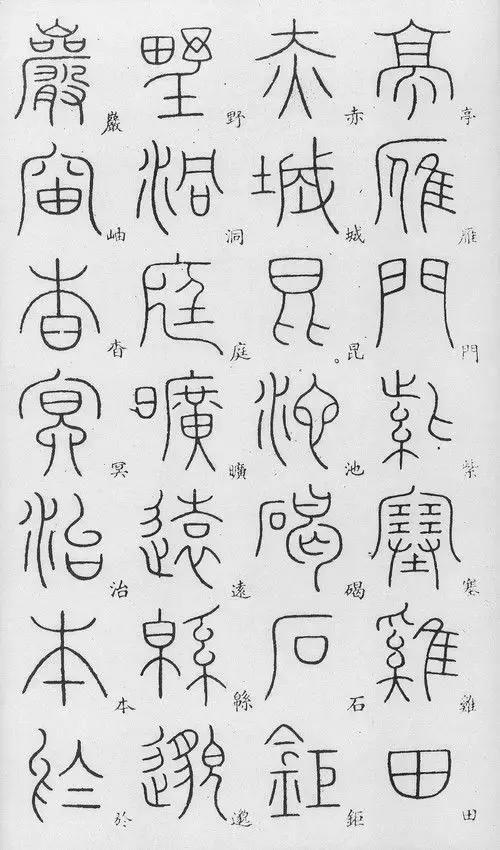 亭雁門紫塞雞田
赤城昆池碣石鉅
野洞庭曠遠緜邈
巖岫杳冥治本於